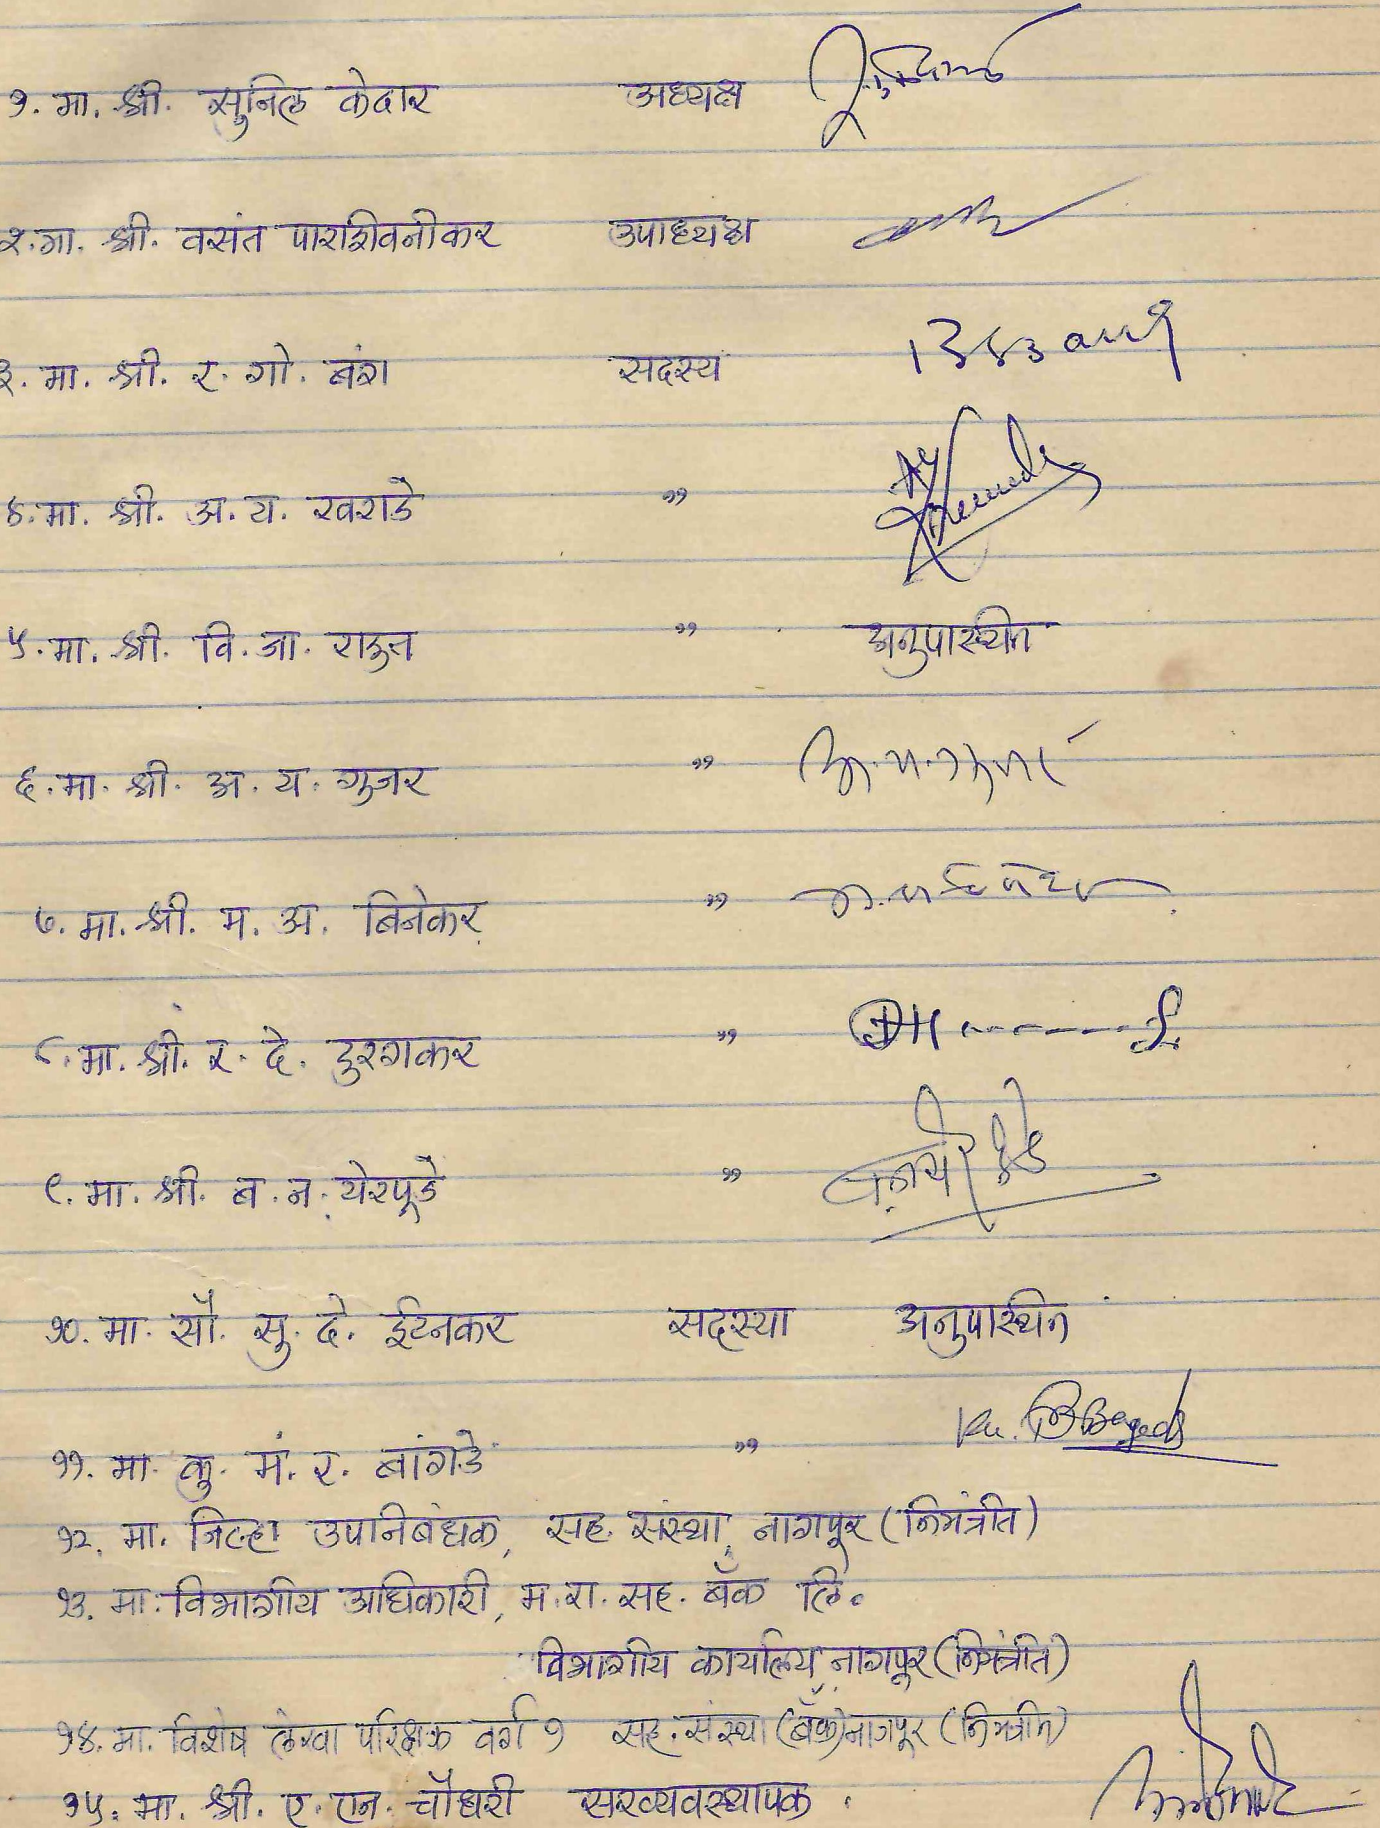 १. मा. श्री. सुनिल केदार अध्यक्ष
२. मा. श्री. वसंत पारशिवनीकर उपाध्यक्ष
३. मा. श्री. र. गो. बंग सदस्य
४. मा. श्री. अ. य. खराडे "
५. मा. श्री. वि. जा. राऊत " अनुपास्थीत
६. मा. श्री. अ. य. गुजर "
७. मा. श्री. म. अ. बिनेकर "
८. मा. श्री. र. दे. दुरुगकर "
९. मा. श्री. ब. न. येरपूडे "
१०. मा. सौ. सु. दे. ईटनकर सदस्या अनुपास्थीत
११. मा. कु. मं. र. बांगडे "
१२. मा. जिल्हा उपनिबंधक, सह. संस्था, नागपूर (निमंत्रीत)
१३. मा. विभागीय अधिकारी, म. रा. सह. बँक लि.
विभागीय कार्यालय, नागपूर (निमंत्रीत)
१४. मा. विशेष लेखा परिक्षक वर्ग १ सह. संस्था (बँक) नागपूर (निमंत्रीत)
१५. मा. श्री. ए. एन. चौधरी सरव्यवस्थापक.